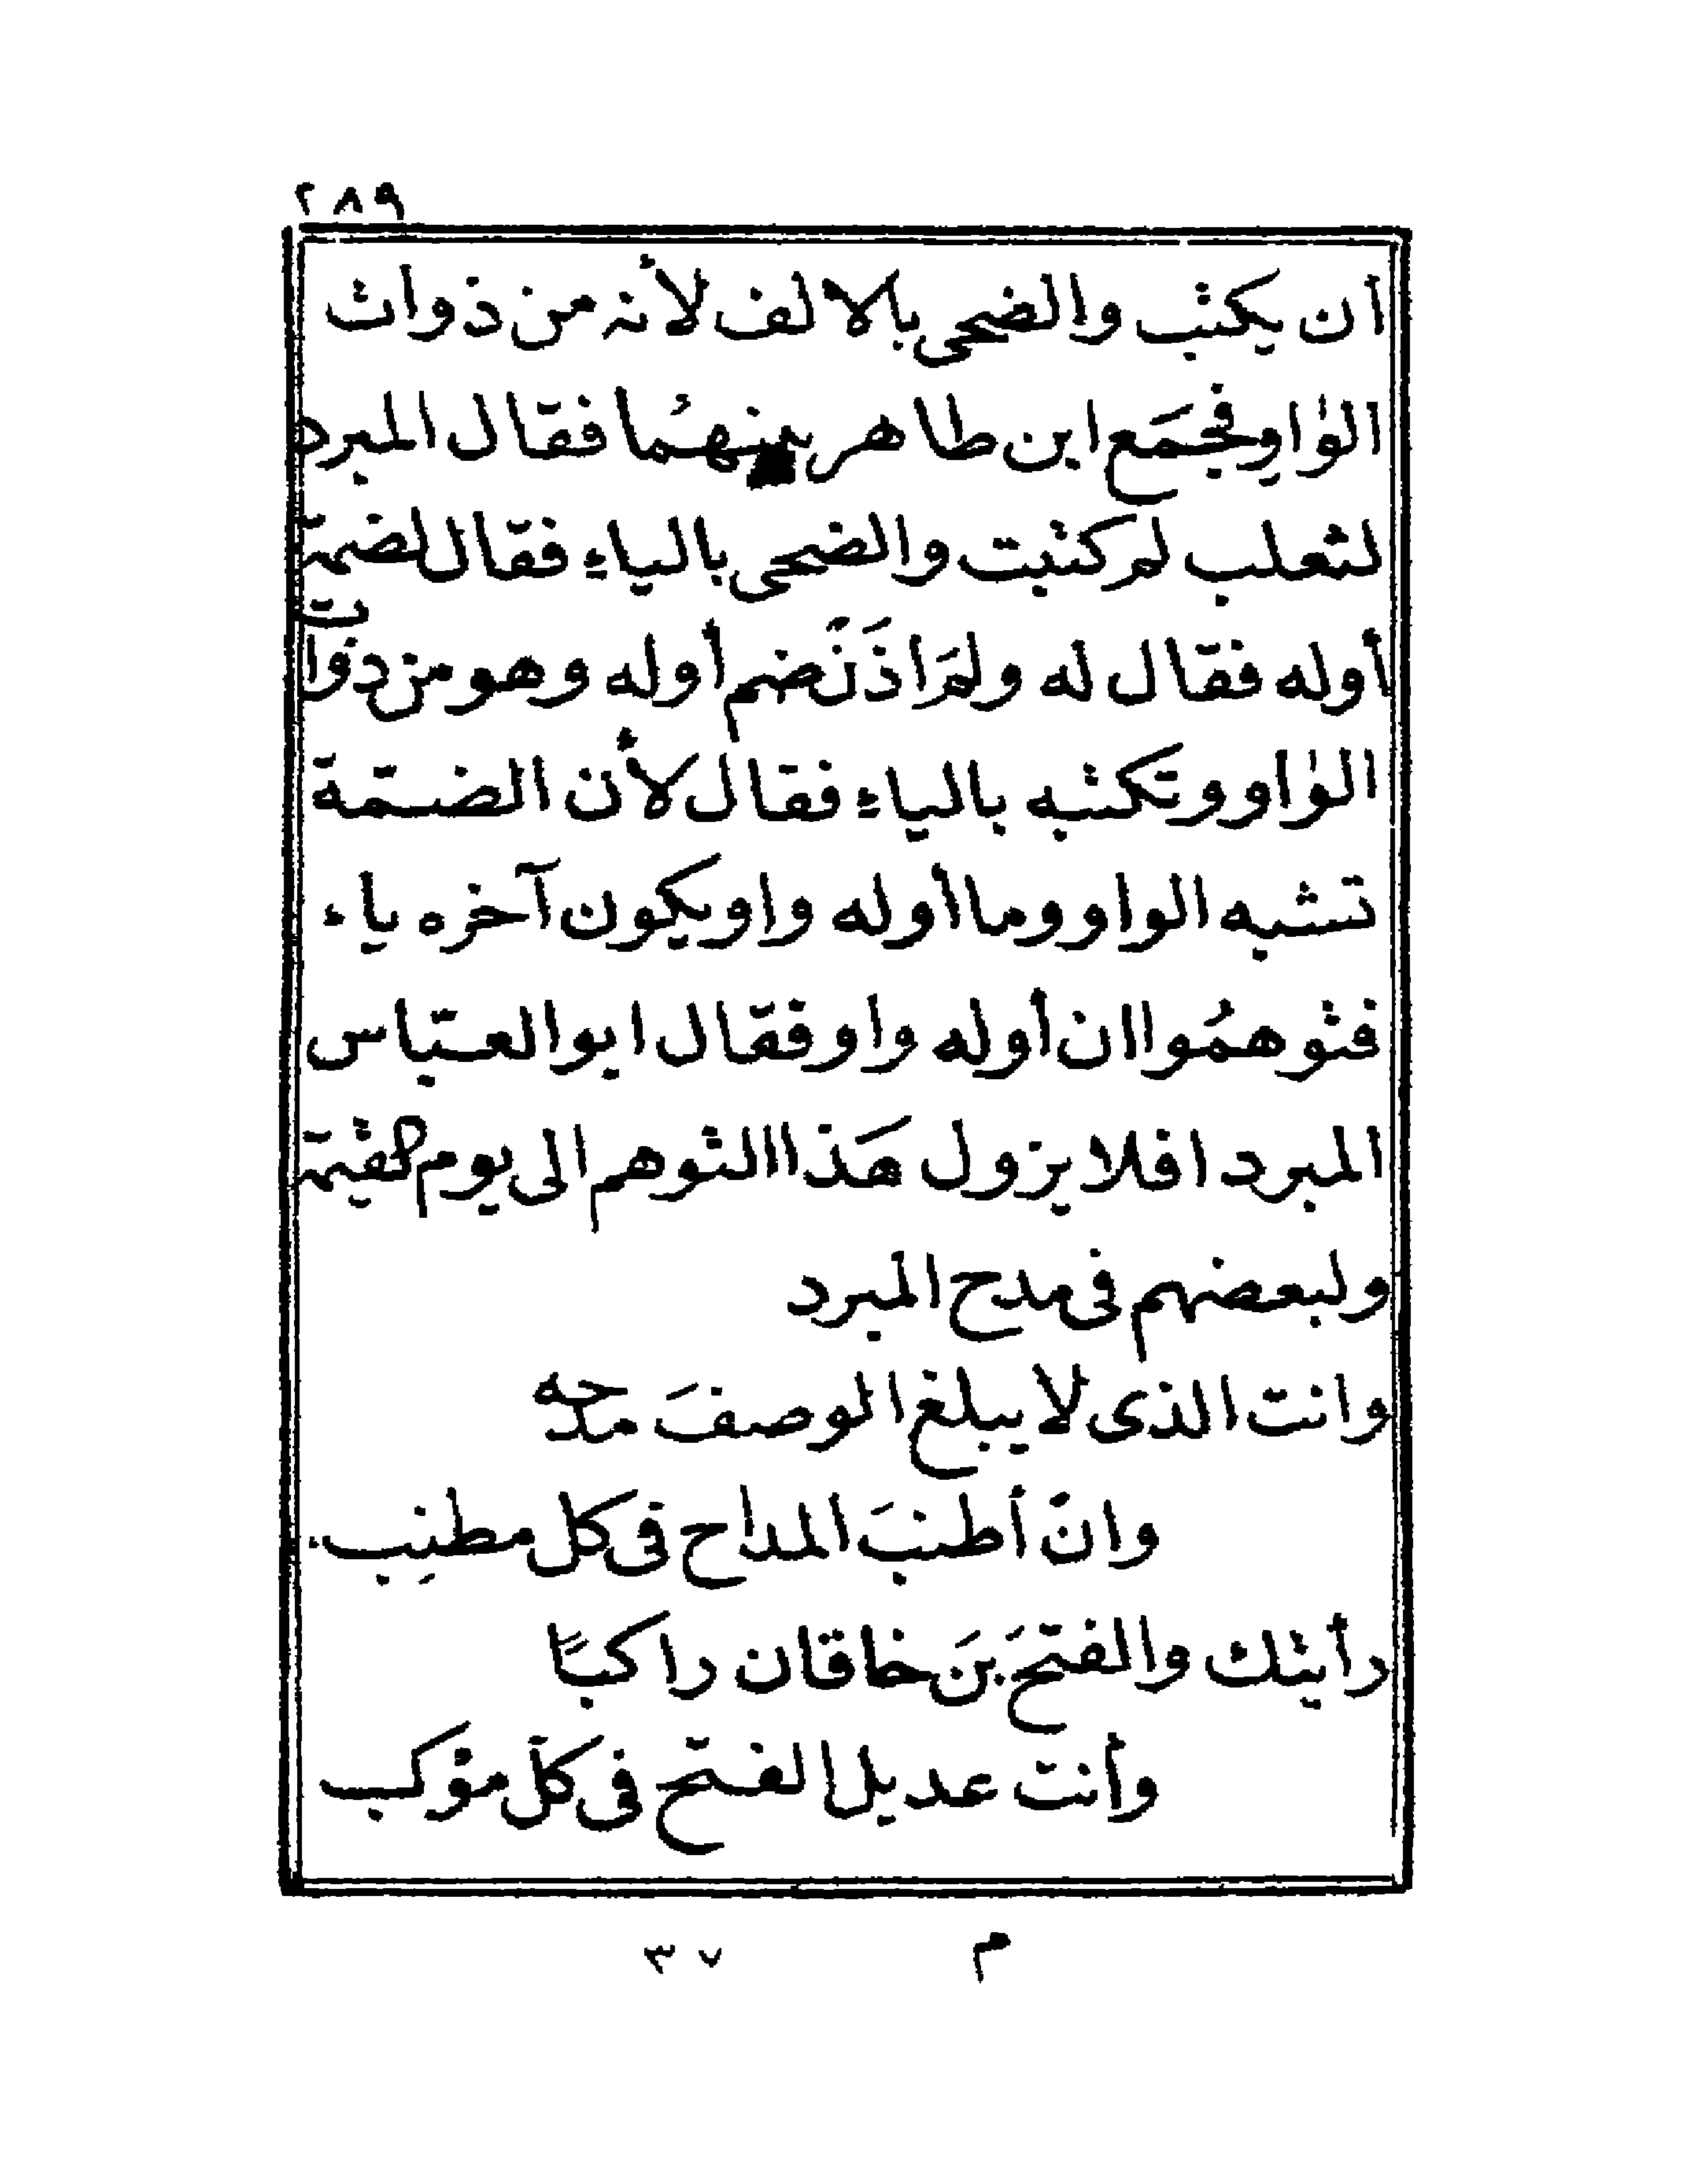 ٢٨٩
أن يكتب والضحى بالالف لأنه من ذوات
الواو فجمَع ابن طاهر بينهُما فقال المبرد
لثعلب لم كتبت والضحى بالياء فقال لضمة
أوله فقال له ولمَ اذَنْ ضم أوله وهو من ذوات
الواو وتكتبه بالياء فقال لأن الضمة
تشبه الواو وما أوله واو يكون آخره ياء
فتوهمُوا ان أوله واو فقال ابو العباس
المبرد افلا يزول هَذا التوهم الى يوم القيمة
ولبعضهم فى مدح المبرد
وانت الذى لا يبلغ الوصفَ مدحه
وانْ أطنبَ المداح فى كل مطنِب
رأيتك والفتحَ بنَ خاقان راكبًا
وأنت عديل الفتح فى كلّ مؤكب
م ٣٧